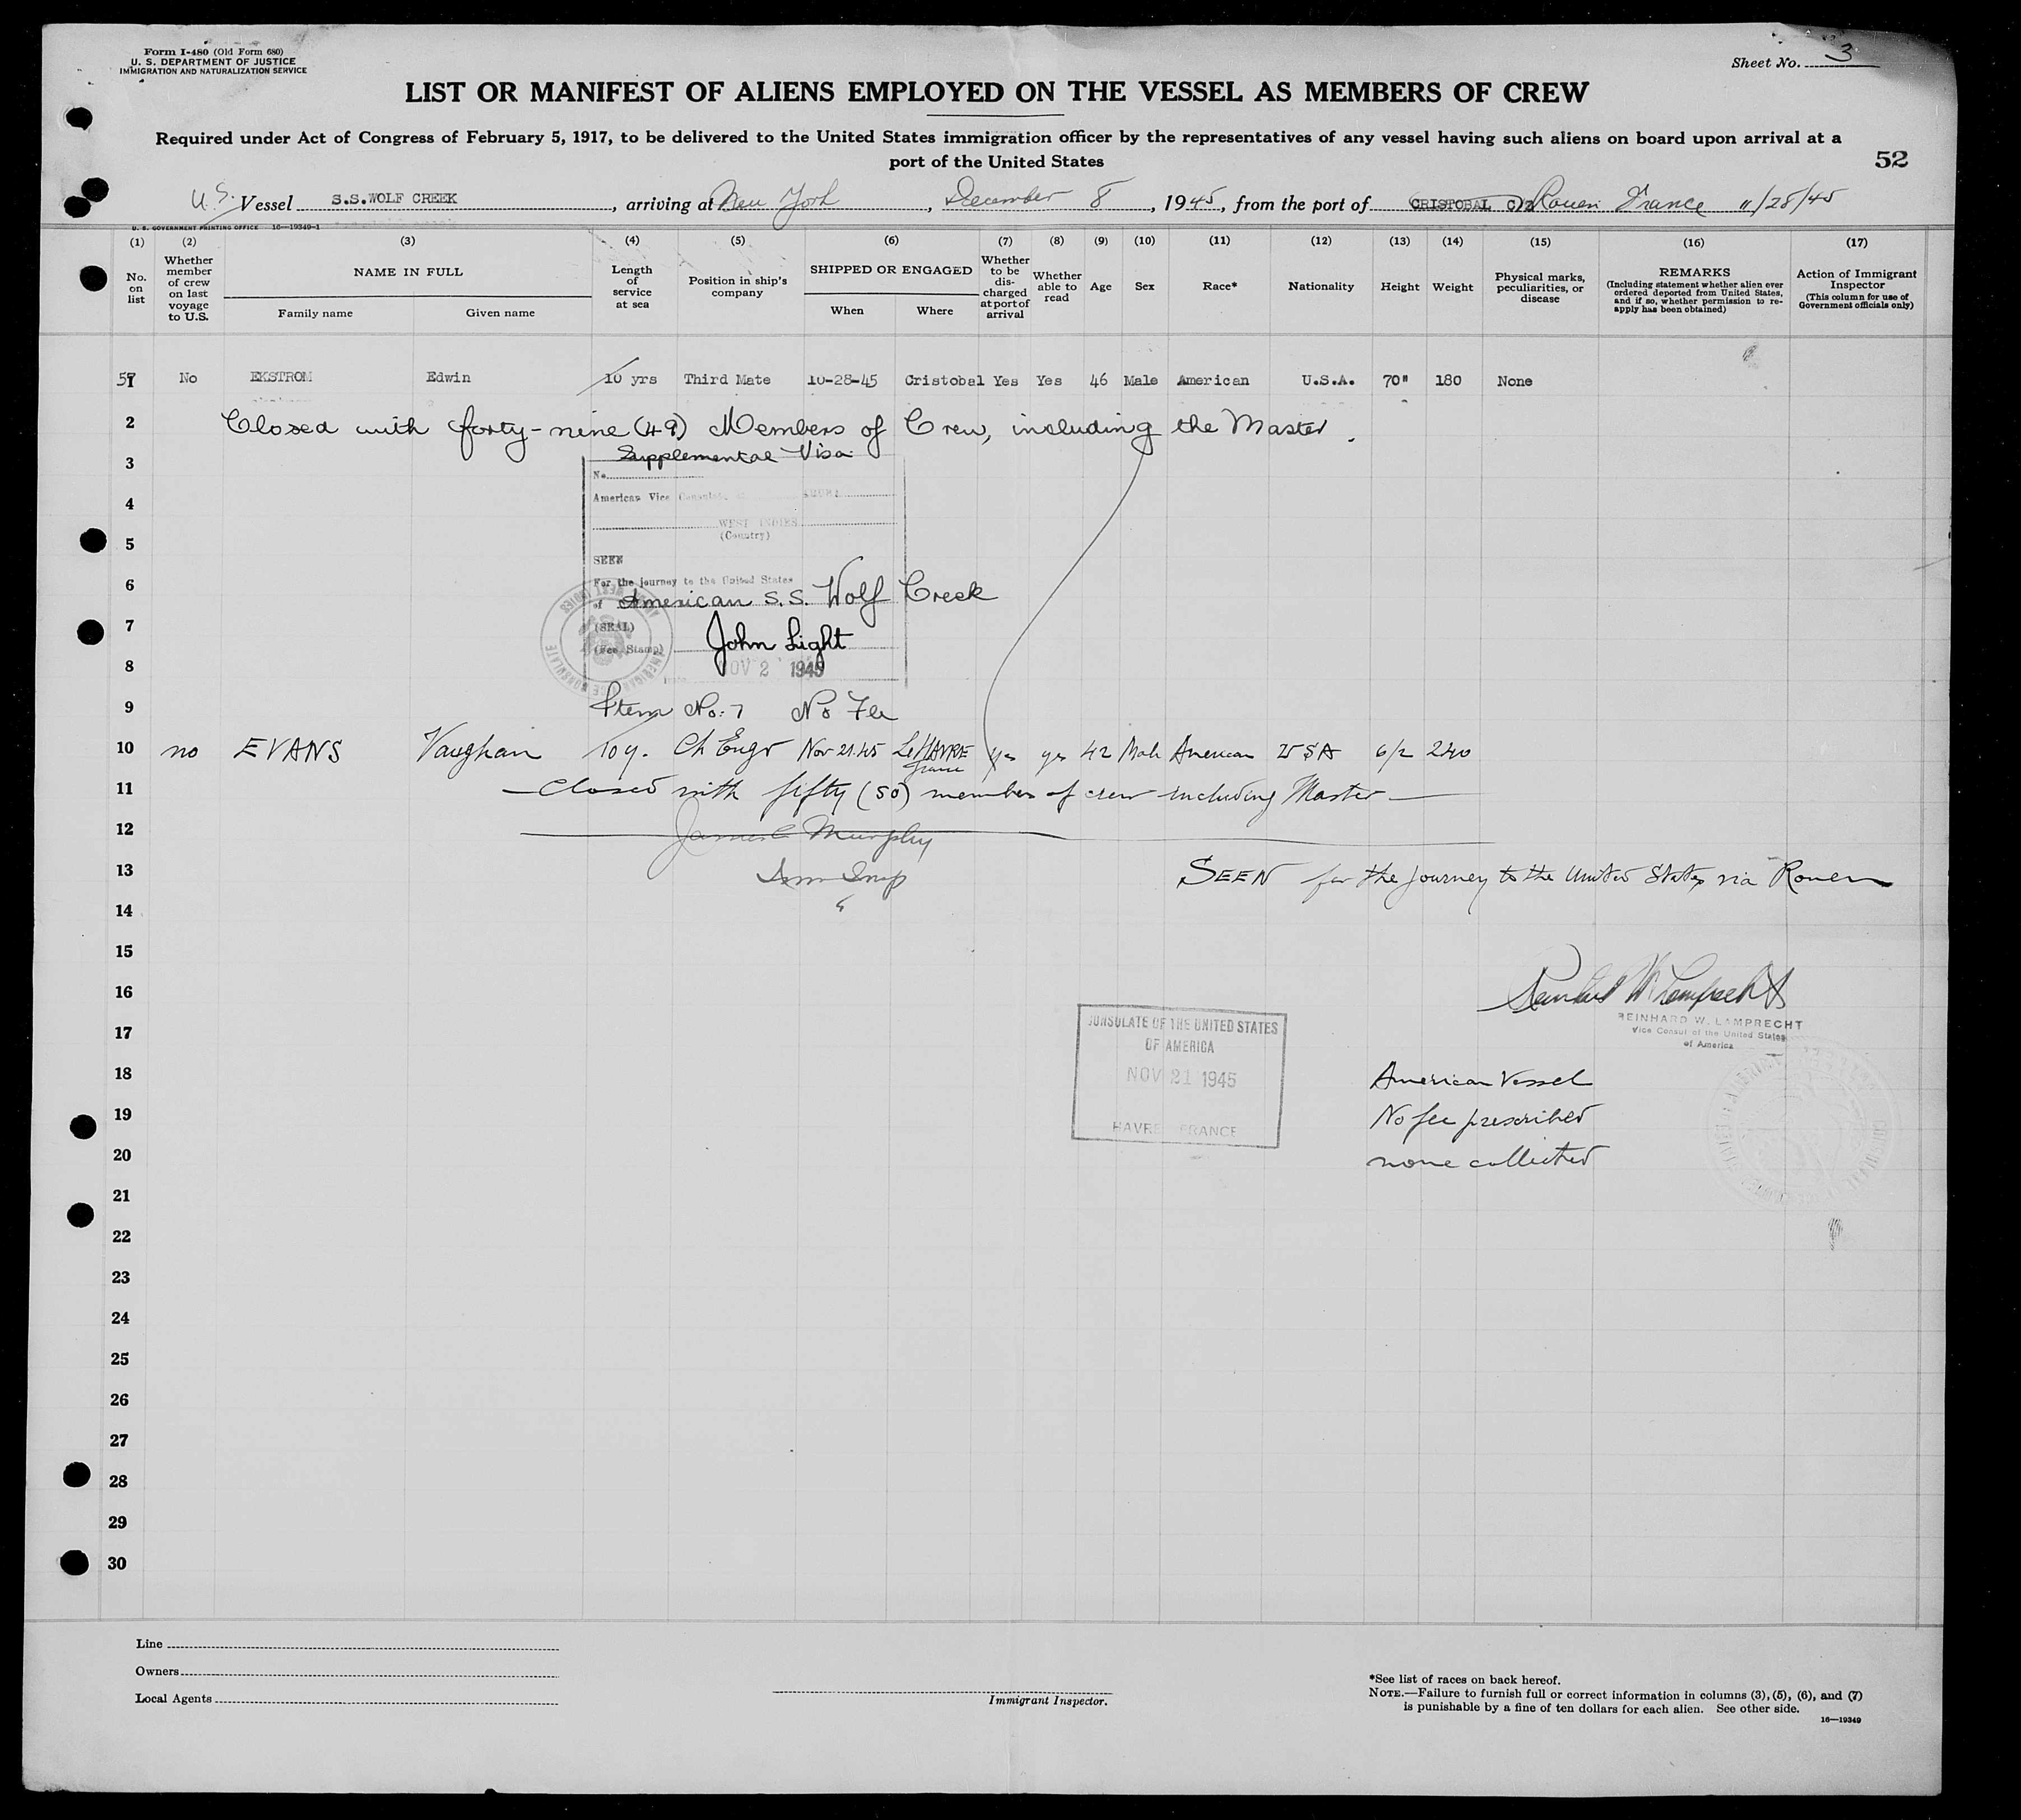 Form I-480 (Old Form 680)
U. S. DEPARTMENT OF JUSTICE
IMMIGRATION AND NATURALIZATION SERVICE
Sheet No. 3
LIST OR MANIFEST OF ALIENS EMPLOYED ON THE VESSEL AS MEMBERS OF CREW
Required under Act of Congress of February 5, 1917, to be delivered to the United States immigration officer by the representatives of any vessel having such aliens on board upon arrival at a
port of the United States
52
U.S. Vessel S.S.WOLF CREEK, arriving at New York, December 8, 1945, from the port of CRISTOBAL CZ Rouen France 11/28/45
U. S. GOVERNMENT PRINTING OFFICE 16—19349-1
(1) (2) (3) (4) (5) (6) (7) (8) (9) (10) (11) (12) (13) (14) (15) (16) (17)
No. on list
Whether member of crew on last voyage to U.S.
NAME IN FULL
Family name Given name
Length of service at sea
Position in ship's company
SHIPPED OR ENGAGED
When Where
Whether to be discharged at port of arrival
Whether able to read
Age
Sex
Race*
Nationality
Height
Weight
Physical marks, peculiarities, or disease
REMARKS
(Including statement whether alien ever ordered deported from United States, and if so, whether permission to re-apply has been obtained)
Action of Immigrant Inspector
(This column for use of Government officials only)
51 No EKSTROM Edwin 10 yrs Third Mate 10-28-45 Cristobal Yes Yes 46 Male American U.S.A. 70" 180 None
2 Closed with forty-nine (49) Members of Crew, including the Master.
Supplemental Visa
3
No.
4
American Vice Consulate
WEST INDIES
(Country)
5
SEEN
6
For the journey to the United States
of American S.S. Wolf Creek
7
(SEAL)
John Light
(Fee Stamp)
8
NOV 2 1945
9 Item No. 7 No Fee
10 no EVANS Vaughan 10y. Ch Engr Nov 21.45 Le HAVRE France yes yes 42 Male American USA 6/2 240
11 Closed with fifty (50) members of crew including Master
12 James C Murphy
13 Imm Insp
SEEN for the journey to the United States via Rouen
14
15
16
Reinhard W. Lamprecht
REINHARD W. LAMPRECHT
Vice Consul of the United States
of America
17
CONSULATE OF THE UNITED STATES
OF AMERICA
NOV 21 1945
HAVRE FRANCE
18 American Vessel
19 No fee prescribed
20 none collected
21
22
23
24
25
26
27
28
29
30
Line
Owners
Local Agents
Immigrant Inspector.
*See list of races on back hereof.
NOTE.—Failure to furnish full or correct information in columns (3), (5), (6), and (7)
is punishable by a fine of ten dollars for each alien. See other side.
16—19349